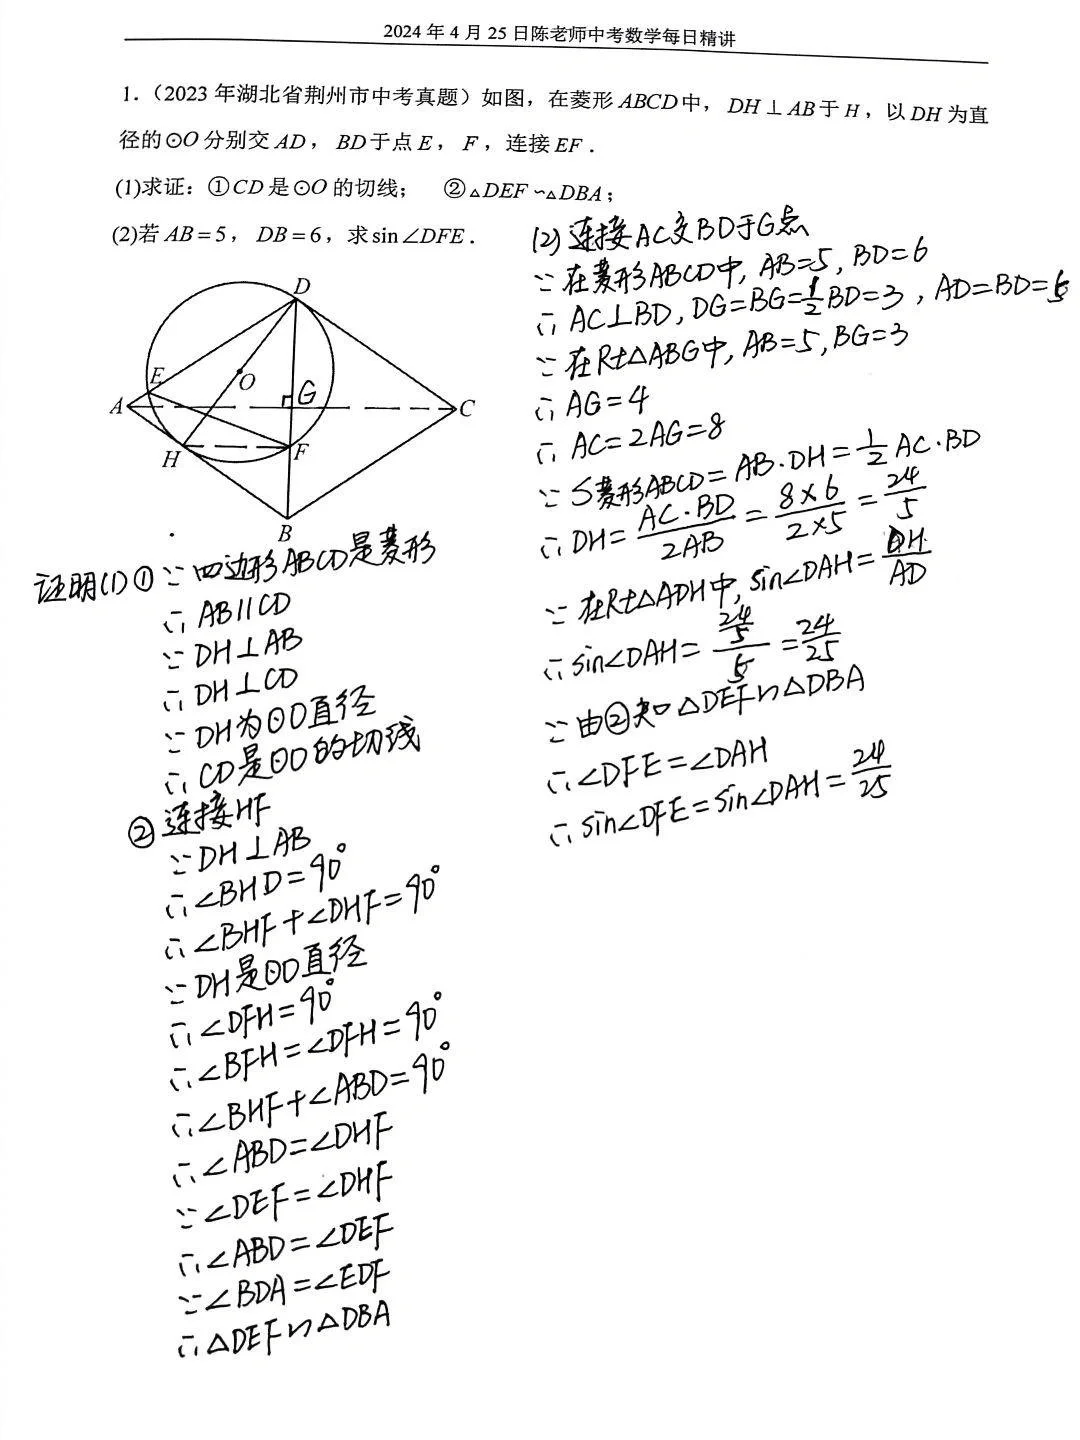 2024 年 4 月 25 日陈老师中考数学每日精讲
1.（2023 年湖北省荆州市中考真题）如图，在菱形 ABCD 中，DH⊥AB于H，以DH为直
径的⊙O分别交AD，BD于点E，F，连接EF．
(1)求证：①CD是⊙O的切线； ②△DEF∽△DBA；
(2)若AB=5，DB=6，求sin∠DFE．
D
E
O
G
A
C
H
F
B
证明(1)①∵四边形ABCD是菱形
∴AB∥CD
∵DH⊥AB
∴DH⊥CD
∵DH为⊙O直径
∴CD是⊙O的切线
②连接HF
∵DH⊥AB
∴∠BHD=90°
∴∠BHF+∠DHF=90°
∵DH是⊙O直径
∴∠DFH=90°
∴∠BFH=∠DFH=90°
∴∠BHF+∠ABD=90°
∴∠ABD=∠DHF
∵∠DEF=∠DHF
∴∠ABD=∠DEF
∵∠BDA=∠EDF
∴△DEF∽△DBA
(2)连接AC交BD于G点
∵在菱形ABCD中,AB=5,BD=6
∴AC⊥BD,DG=BG=1/2BD=3,AD=BD=5
∵在Rt△ABG中,AB=5,BG=3
∴AG=4
∴AC=2AG=8
∵S菱形ABCD=AB·DH=1/2AC·BD
∴DH=AC·BD/2AB=8×6/2×5=24/5
∵在Rt△ADH中,sin∠DAH=DH/AD
∴sin∠DAH=24/5/5=24/25
∵由②知△DEF∽△DBA
∴∠DFE=∠DAH
∴sin∠DFE=sin∠DAH=24/25